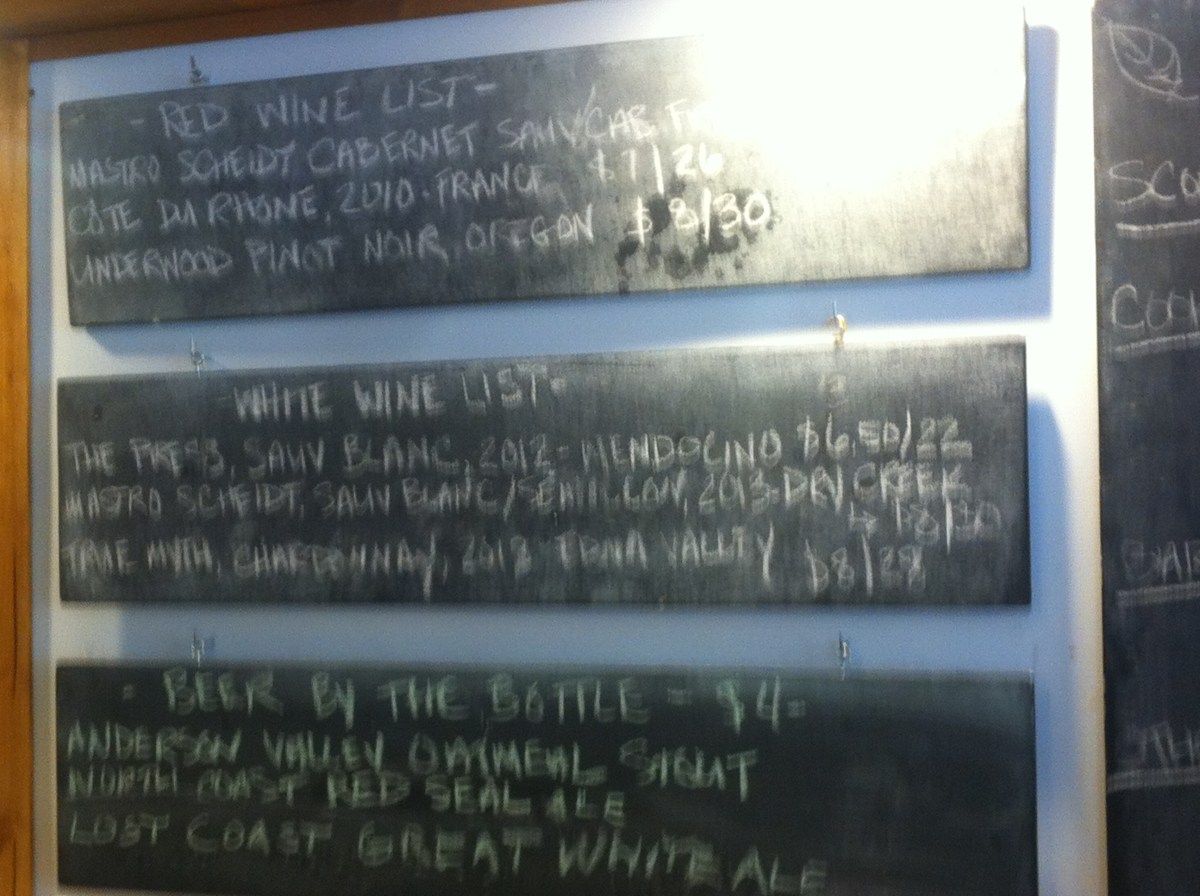 - RED WINE LIST -
MASTRO SCHEIDT CABERNET SAUV/CAB F
CÔTE DU RHÔNE, 2010 - FRANCE $7/26
UNDERWOOD PINOT NOIR, OREGON $8/30
- WHITE WINE LIST -
THE PRESS, SAUV BLANC, 2012 - MENDOCINO $6.50/22
MASTRO SCHEIDT, SAUV BLANC/SEMILLON, 2013 - DRY CREEK
TRUE MYTH, CHARDONNAY, 2012 EDNA VALLEY $8/28
- BEER BY THE BOTTLE - $4 -
ANDERSON VALLEY OATMEAL STOUT
NORTH COAST RED SEAL ALE
LOST COAST GREAT WHITE ALE
SCO